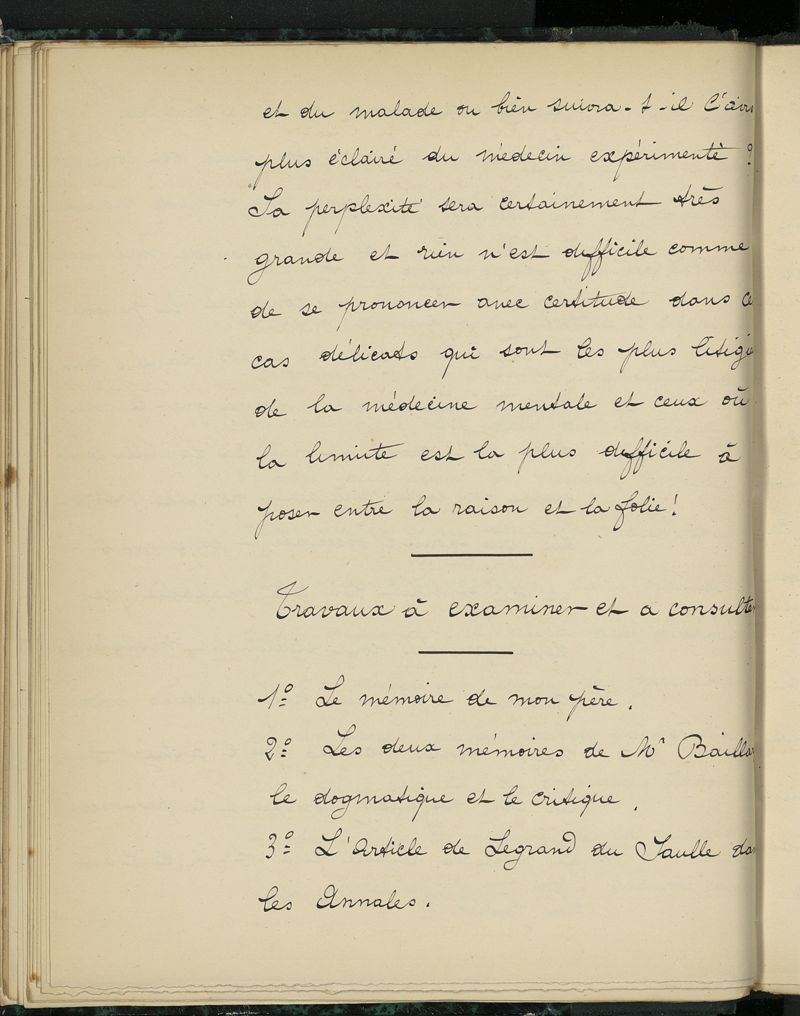 et du malade ou bien suivra-t-il l'avis
plus éclairé du médecin expérimenté ?
Sa perplexité sera certainement très
grande et rien n'est difficile comme
de se prononcer avec certitude dans ce
cas délicats qui sont les plus litigi
de la médecine mentale et ceux où
la limite est la plus difficile à
poser entre la raison et la folie !
Travaux à examiner et a consulter
1º Le mémoire de mon père.
2º Les deux mémoires de Mr Baillar
le dogmatique et le critique.
3º L'Article de Legrand du Saulle da
les Annales.